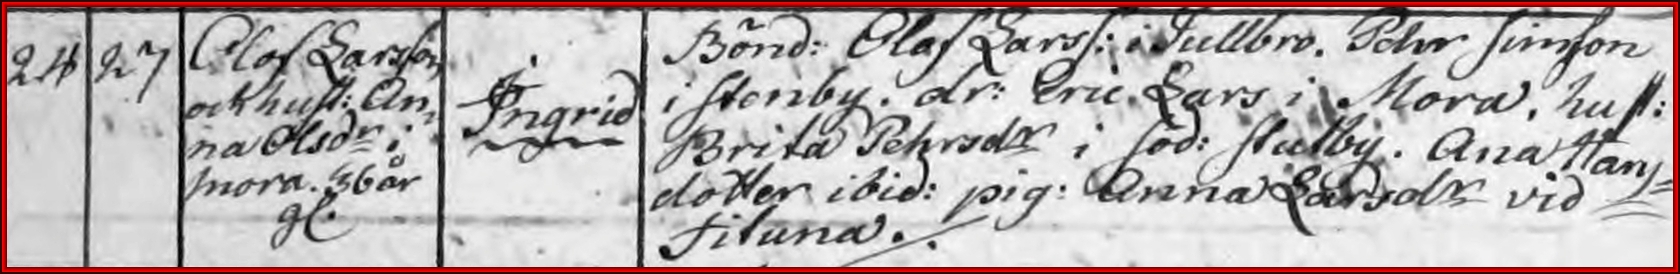 24
27
Olof Larsson
ock hust: An,
na Olsdr i
mora. 36 år
gl.
Ingrid
Bönd: Olof Larss: i Tullbro. Pehr Simson
i Stenby. dr: Eric Lars i Mora, hust:
Brita Pehrsdr i söd: Stutby. Ana Hans=
dotter ibid: pig: Anna Larsdr vid
Fituna.